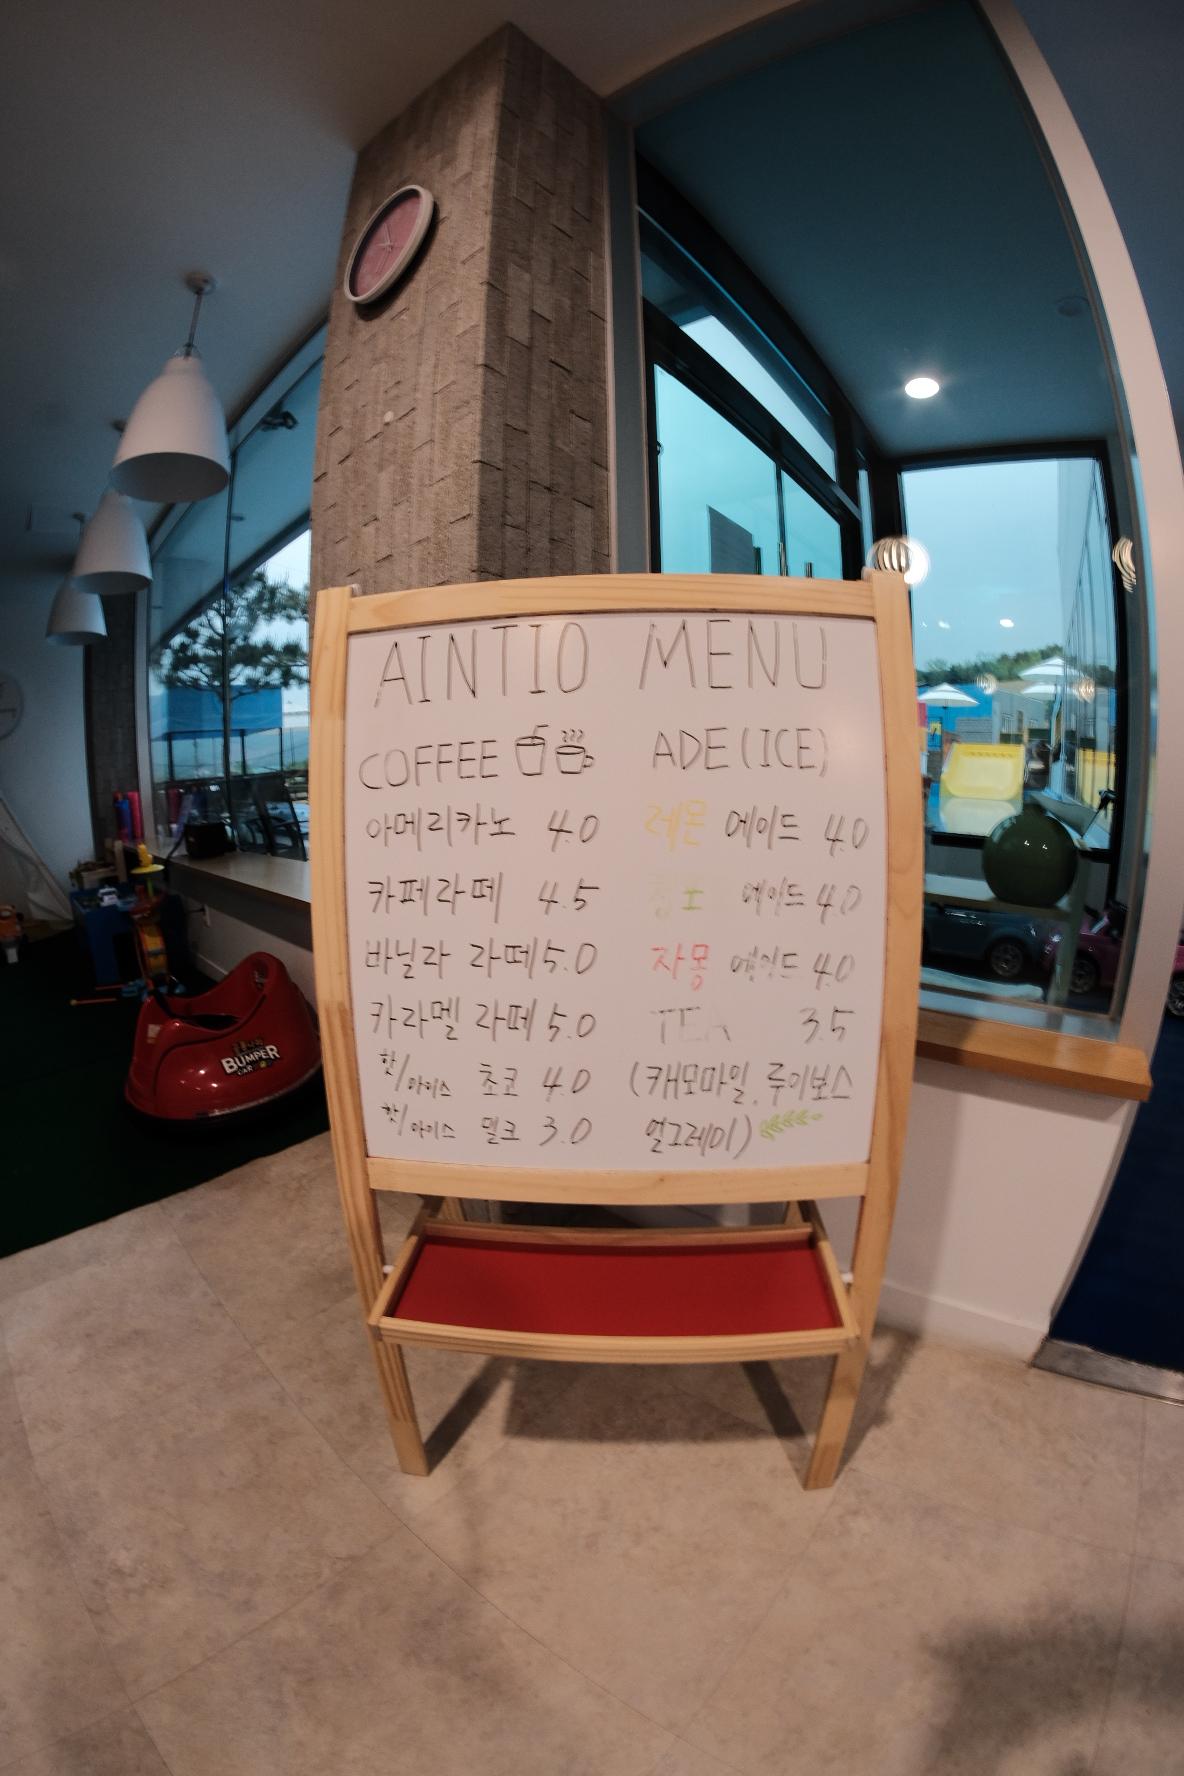 AINTIO MENU
COFFEE
아메리카노 4.0
카페라떼 4.5
바닐라 라떼 5.0
카라멜 라떼 5.0
핫/아이스 초코 4.0
핫/아이스 밀크 3.0
ADE(ICE)
레몬 에이드 4.0
청포 에이드 4.0
자몽 에이드 4.0
TEA 3.5
(캐모마일, 루이보스
얼그레이)
BUMPER
CAR